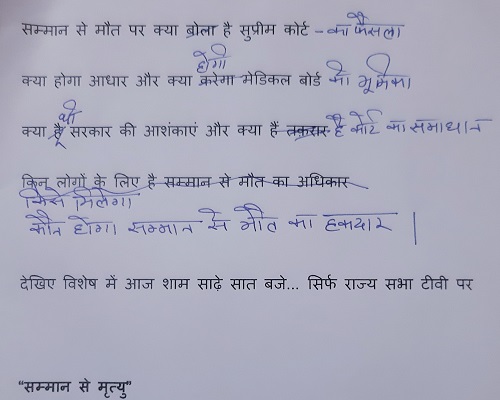 सम्मान से मौत पर क्या बोला है सुप्रीम कोर्ट - का फैसला
होगी
क्या होगा आधार और क्या करेगा मेडिकल बोर्ड की भूमिका
थी
क्या है सरकार की आशंकाएं और क्या हैं तकरार है कोर्ट का समाधान
किन लोगों के लिए है सम्मान से मौत का अधिकार
किसे मिलेगा
कौन होगा सम्मान से मौत का हकदार |
देखिए विशेष में आज शाम साढ़े सात बजे... सिर्फ राज्य सभा टीवी पर
“सम्मान से मृत्यु”